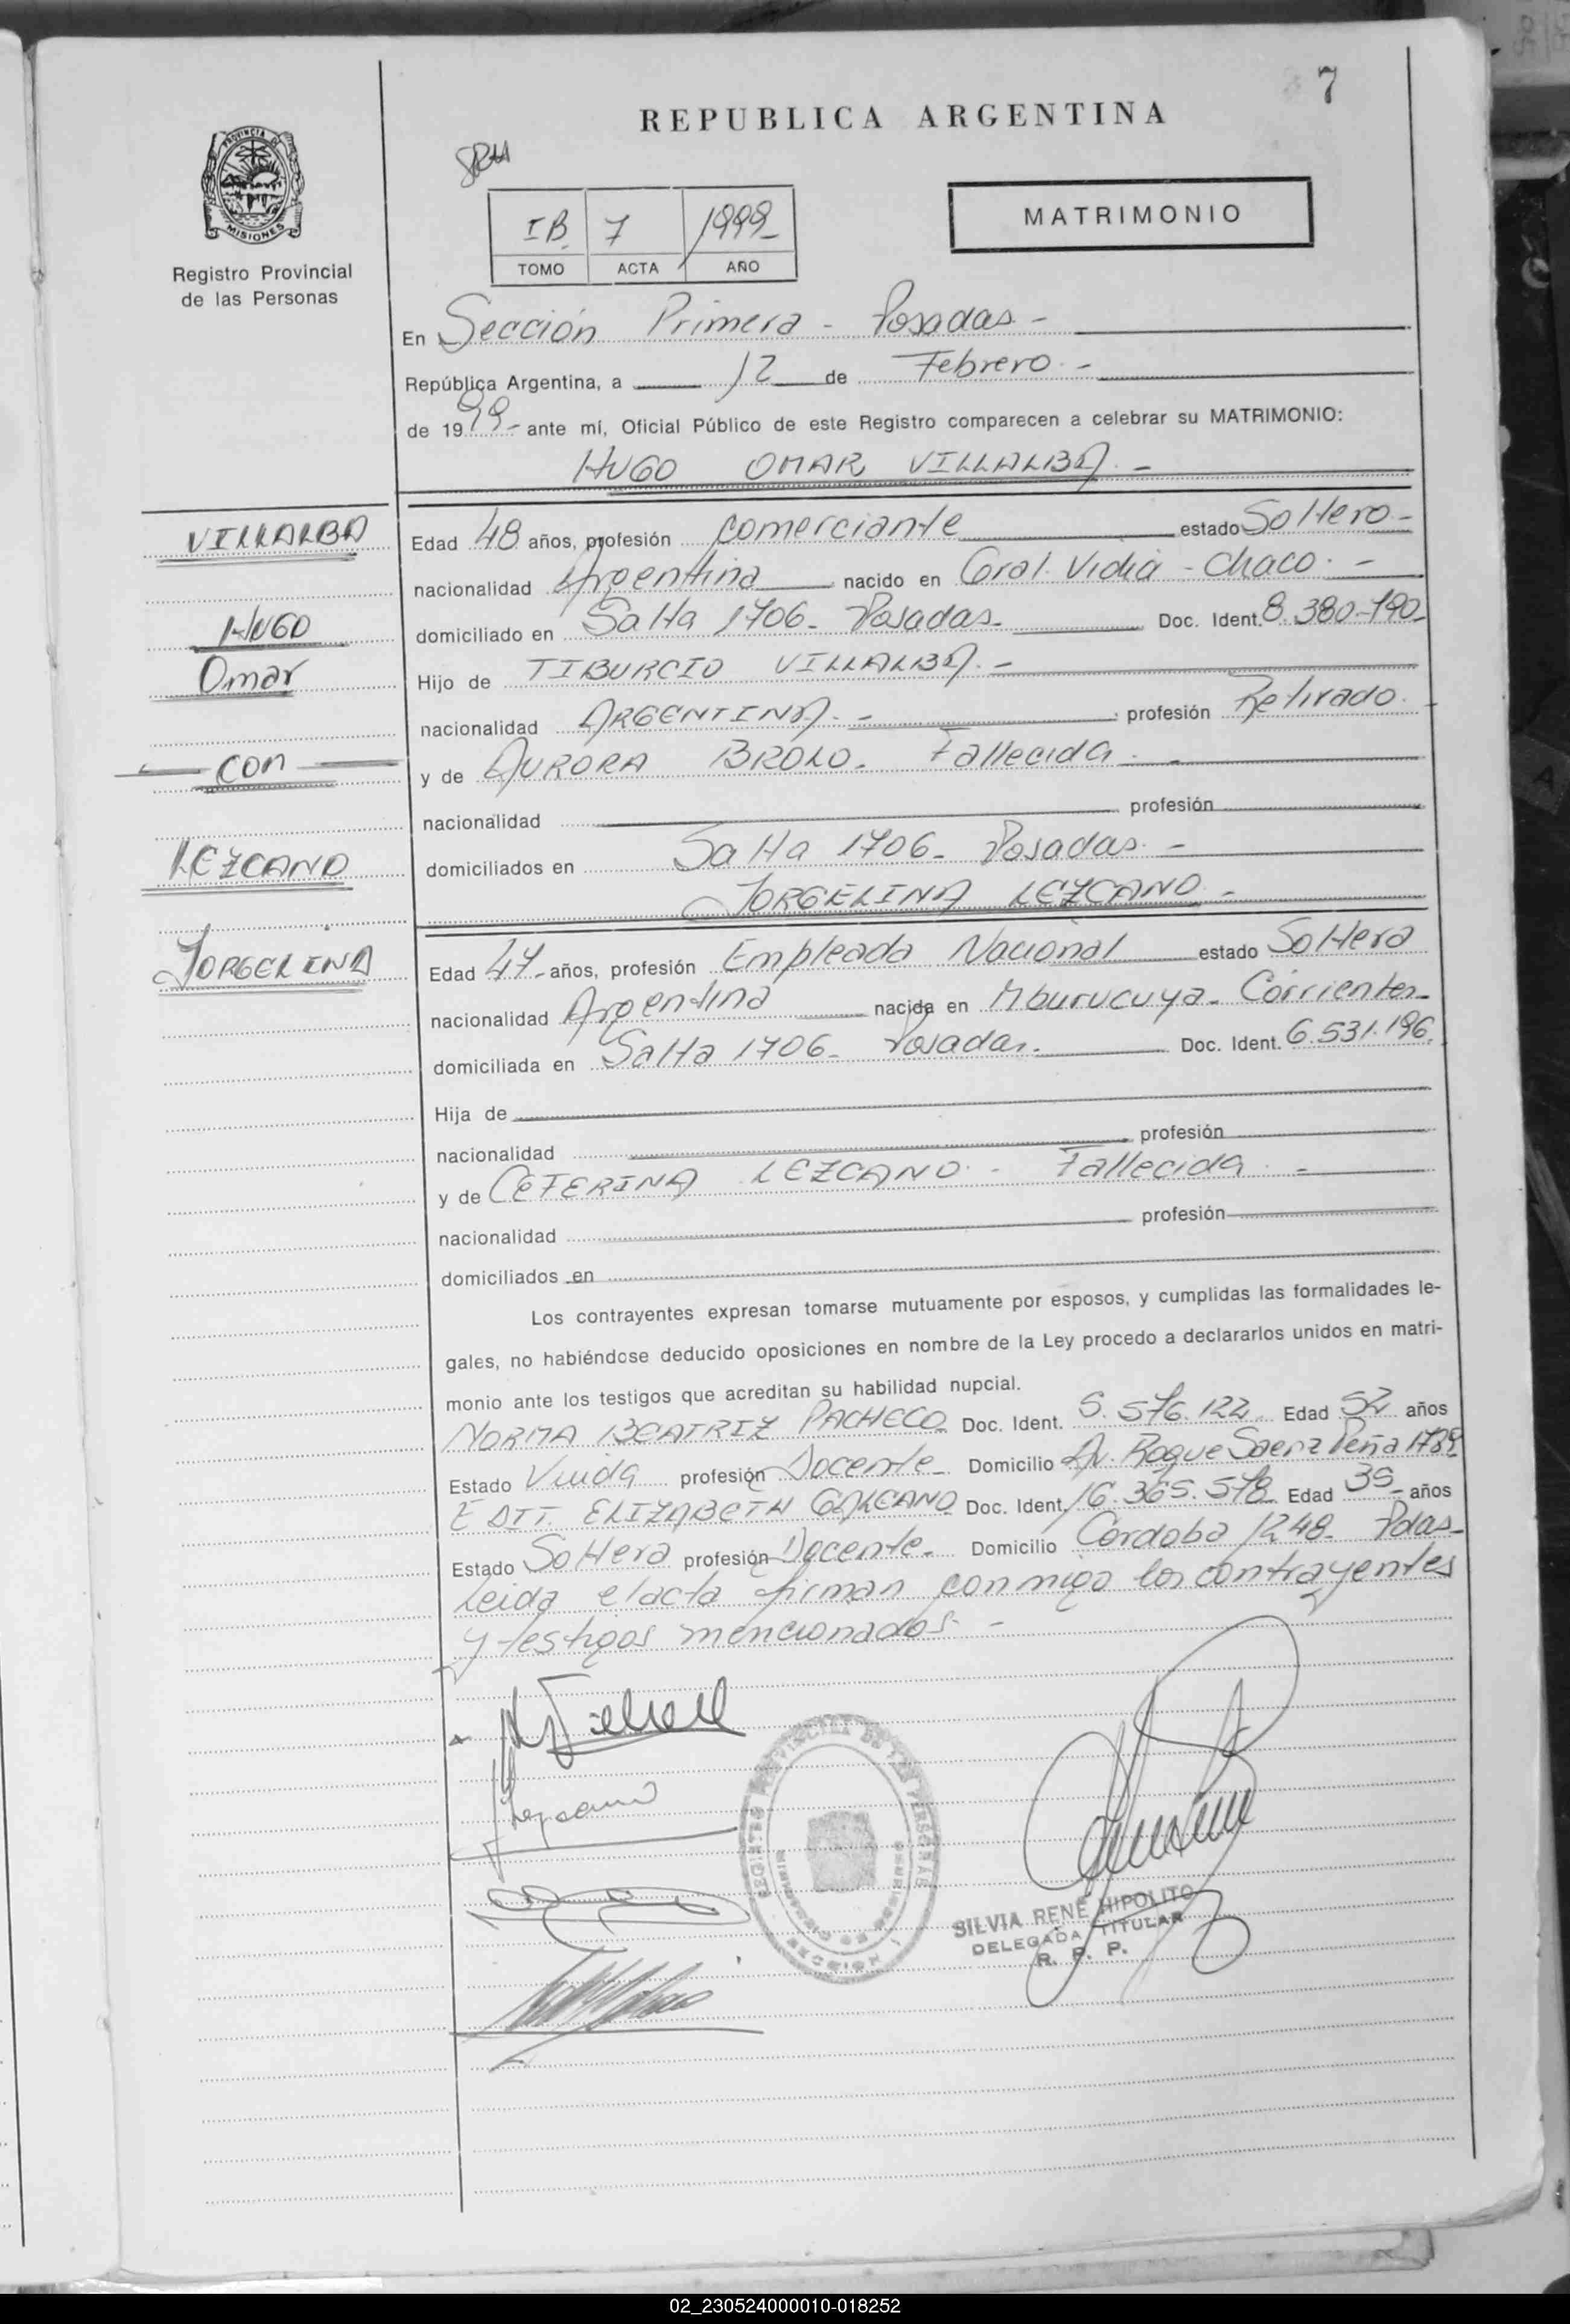 7
REPUBLICA ARGENTINA
PROVINCIA DE
MISIONES
Registro Provincial
de las Personas
IB. 7 1999-
TOMO ACTA AÑO
MATRIMONIO
En Sección Primera - Posadas -
República Argentina, a 12 de Febrero -
de 1999- ante mí, Oficial Público de este Registro comparecen a celebrar su MATRIMONIO:
HUGO OMAR VILLALBA. -
VILLALBA
HUGO
Omar
con
LEZCANO
JORGELINA
Edad 48 años, profesión Comerciante estado Soltero -
nacionalidad Argentina nacido en Gral. Vidia - Chaco. -
domiciliado en Salta 1706 - Posadas - Doc. Ident. 8.380.190-
Hijo de TIBURCIO VILLALBA. -
nacionalidad ARGENTINA. - profesión Retirado.
y de AURORA BROLO. Fallecida. -
nacionalidad profesión
domiciliados en Salta 1706 - Posadas. -
JORGELINA LEZCANO -
Edad 47 - años, profesión Empleada Nacional estado Soltera
nacionalidad Argentina nacida en Mburucuya - Corrientes -
domiciliada en Salta 1706 - Posadas. Doc. Ident. 6.531.196.
Hija de
nacionalidad profesión
y de CEFERINA LEZCANO. - Fallecida. -
nacionalidad profesión
domiciliados en
Los contrayentes expresan tomarse mutuamente por esposos, y cumplidas las formalidades le-
gales, no habiéndose deducido oposiciones en nombre de la Ley procedo a declararlos unidos en matri-
monio ante los testigos que acreditan su habilidad nupcial.
NORMA BEATRIZ PACHECO Doc. Ident. 5.576.122 Edad 52 años
Estado Viuda profesión Docente - Domicilio Av. Roque Saenz Peña 1789
EDIT. ELIZABETH GALEANO Doc. Ident. 16.365.578 Edad 35 - años
Estado Soltera profesión Docente - Domicilio Córdoba 1248 - Pdas -
Leida el acta firman conmigo los contrayentes
y testigos mencionados. -
Lezcano
REGISTRO PROVINCIAL DE LAS PERSONAS
SILVIA RENÉ HIPOLITO
DELEGADA TITULAR
R. P. P.
02_230524000010-018252